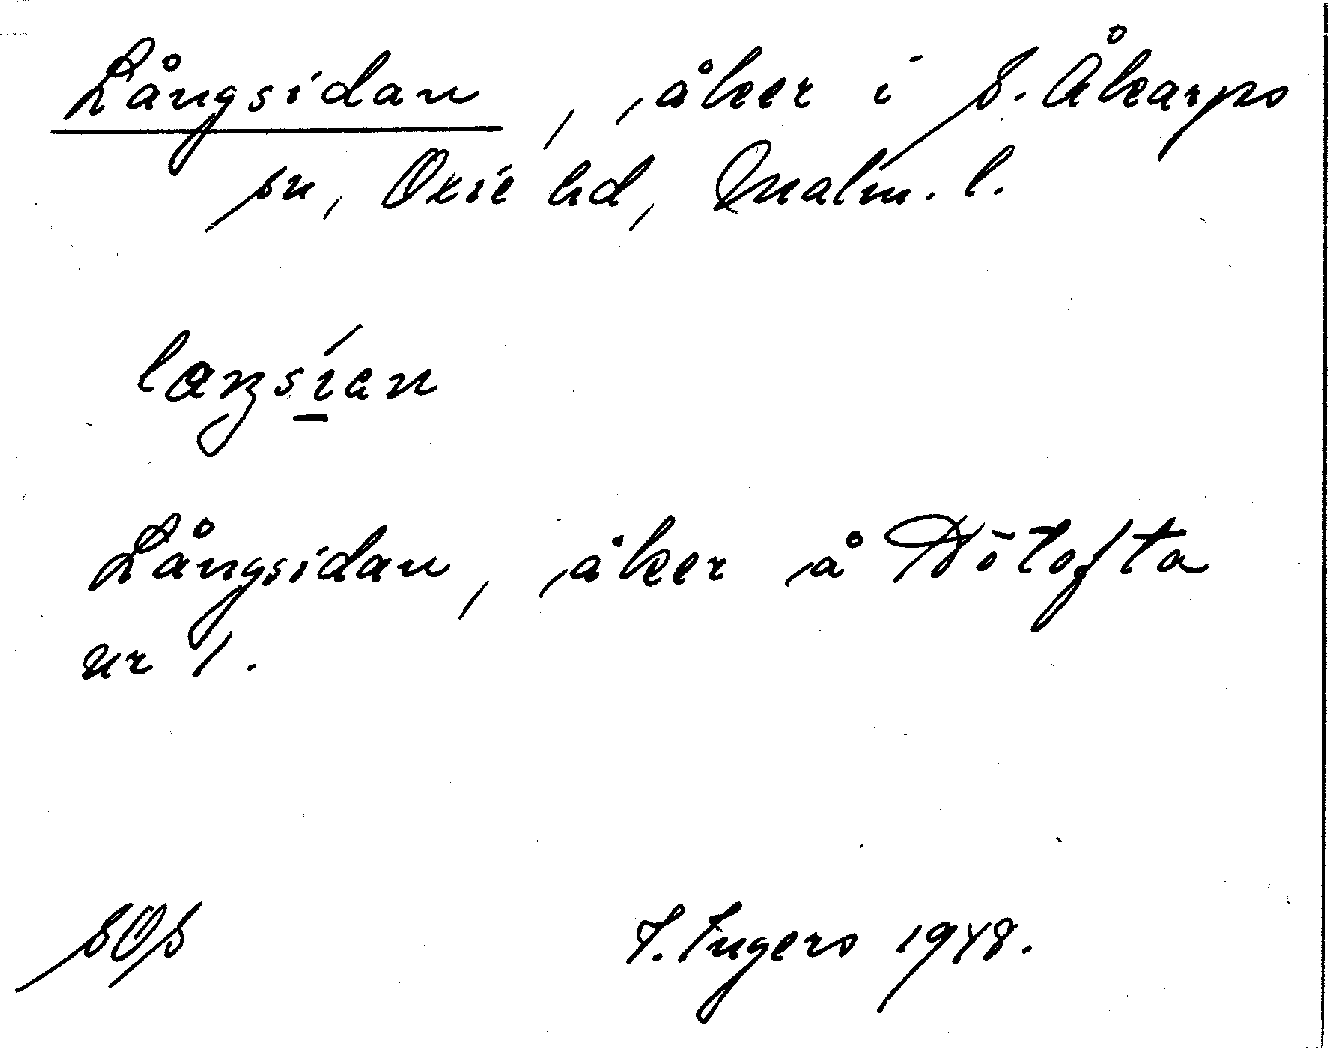 Långsidan, åker i S. Åkarps
sn, Oxie hd, Malm. l.
laŋsían
Långsidan, åker å Dötofta
nr 1.
SOS I. Ingers 1948.